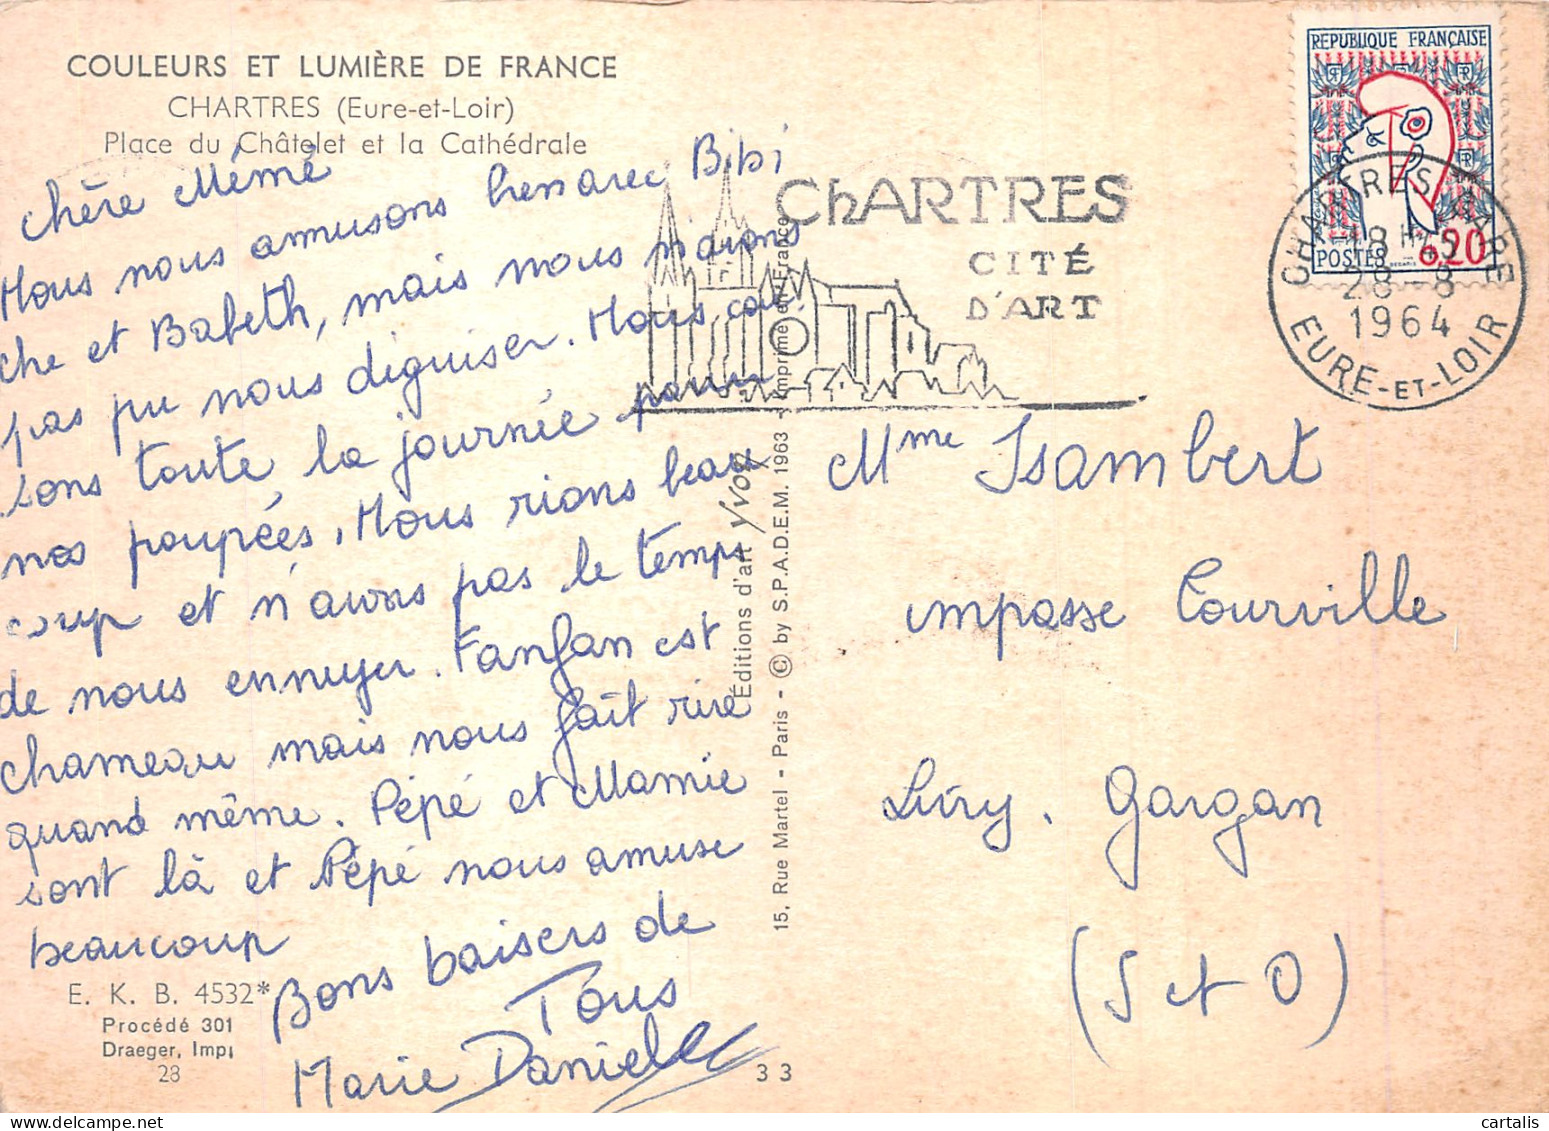 COULEURS ET LUMIÈRE DE FRANCE
CHARTRES (Eure-et-Loir)
Place du Châtelet et la Cathédrale
Chère Mémé
Nous nous amusons bien avec Bibi
che et Babeth, mais nous n'avons
pas pu nous déguiser. Nous cou
sons toute la journée pour
nos poupées. Nous rions beau
coup et n'avons pas le temps
de nous ennuyer. Fanfan est
chameau mais nous fait rire
quand même. Pépé et Mamie
sont là et Pépé nous amuse
beaucoup
Bons baisers de
Tous
Marie Danielle
E. K. B. 4532*
Procédé 301
Draeger, Imp
28
Éditions d'art Yvon
15, Rue Martel - Paris - © by S.P.A.D.E.M. 1963 - Imprimé en France
33
CHARTRES
CITÉ
D'ART
REPUBLIQUE FRANÇAISE
POSTES 0,20
CHARTRES GARE
18 H45
28-8
1964
EURE-ET-LOIR
Mme Isambert
impasse Tourville
Livry. Gargan
(S et O)
cartalis